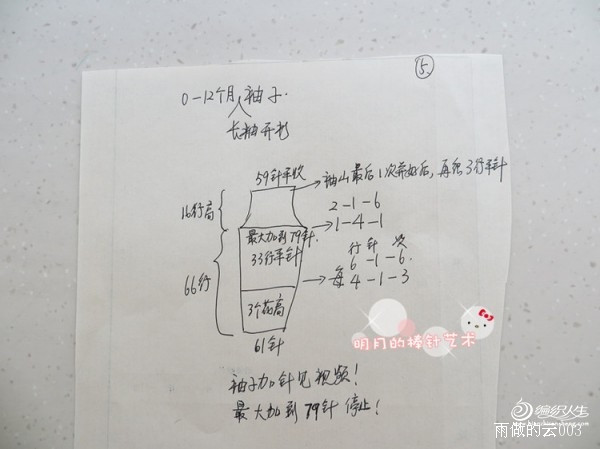 ⑤
0-12个月袖子.
长袖开衫
59针平收
袖山最后1次若好后,再织3行平针
16行高
2-1-6
1-4-1
最大加到79针.
33行平针
行 针 次
6-1-6.
每 4-1-3
66行
3个花高
61针
明月的棒针艺术
袖子加针见视频!
最大加到79针停止!
编织人生
雨做的云003